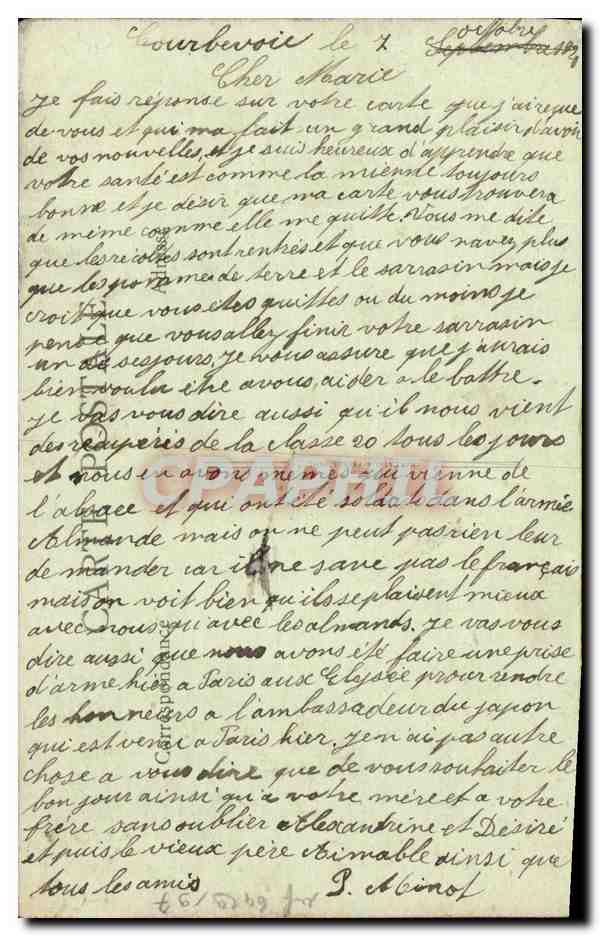 Courbevoie le 7 octobre
Septembre
Cher Marie
Je fais réponse sur votre carte que j'ai reçue
de vous et qui ma fait un grand plaisir d'avoir
de vos nouvelles, et je suis heureux d'apprendre que
votre santé est comme la mienne toujours
bonne et je désir que ma carte vous trouvera
de même comme elle me quitte. Vous me dite
que les récoltes sont rentrés et que vous navez plus
que les pomme de terre et le sarrasin mais je
croit que vous etes quittes ou du moins je
pense que vous allez finir votre sarrasin
un de ses jours, Je vous assure que j'aurais
bien voulu être a vous aider a le battre.
Je vas vous dire aussi qu'il nous vient
des récupérés de la classe 20 tous les jours
et nous en avons mêmes qui vienne de
l'alsace et qui ont été soldats dans l'armée
Almande mais on ne peut pas rien leur
demander car ils ne save pas le français
mais on voit bien qu'ils se plaisent mieux
avec nous qu'avec les almands. Je vas vous
dire aussi que nous avons été faire une prise
d'arme hier a Paris aux Elysée pour rendre
les honneurs a l'ambassadeur du japon
qui est venu a Paris hier. Je n'ai pas autre
chose a vous dire que de vous souhaiter le
bonjour ainsi qu'a votre mère et a votre
frère sans oublier Alexandrine et Désiré
et puis le vieux père Aimable ainsi que
tous les amis P. Minot
CARTE POSTALE
Correspondance
Adresse
CPAPHIL